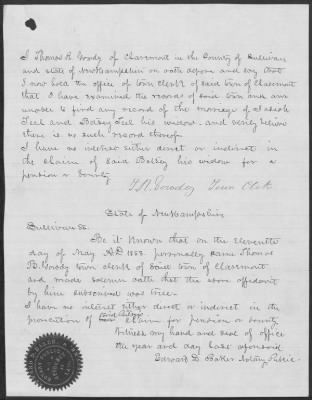 I Thomas R. Gowdy of Claremont in the County of Sullivan
and state of Newhampshire on oath depose and say that
I now hold the office of town clerk of said town of Claremont
that I have examined the records of said town and am
unable to find any record of the marriage of
Teel and Betsey Teel his widow and verily believe
there is no such record thereof.
I have no interest either direct or indirect in
the claim of said Betsey his widow for a
pension or bounty
T. R. Gowdey Town Clerk
State of Newhampshire
Sullivan SS.
Be it Known that on the eleventh
day of May A.D. personally came Thomas
R. Gowdy town clerk of said town of Claremont
and made solemn oath that the above affidavit
by him subscribed was true.
I have no interest either direct or indirect in the
prosecution of claim for pension or bounty
Witness my hand and seal of office
the year and day last aforesaid.
Edward D. Baker Notary Public